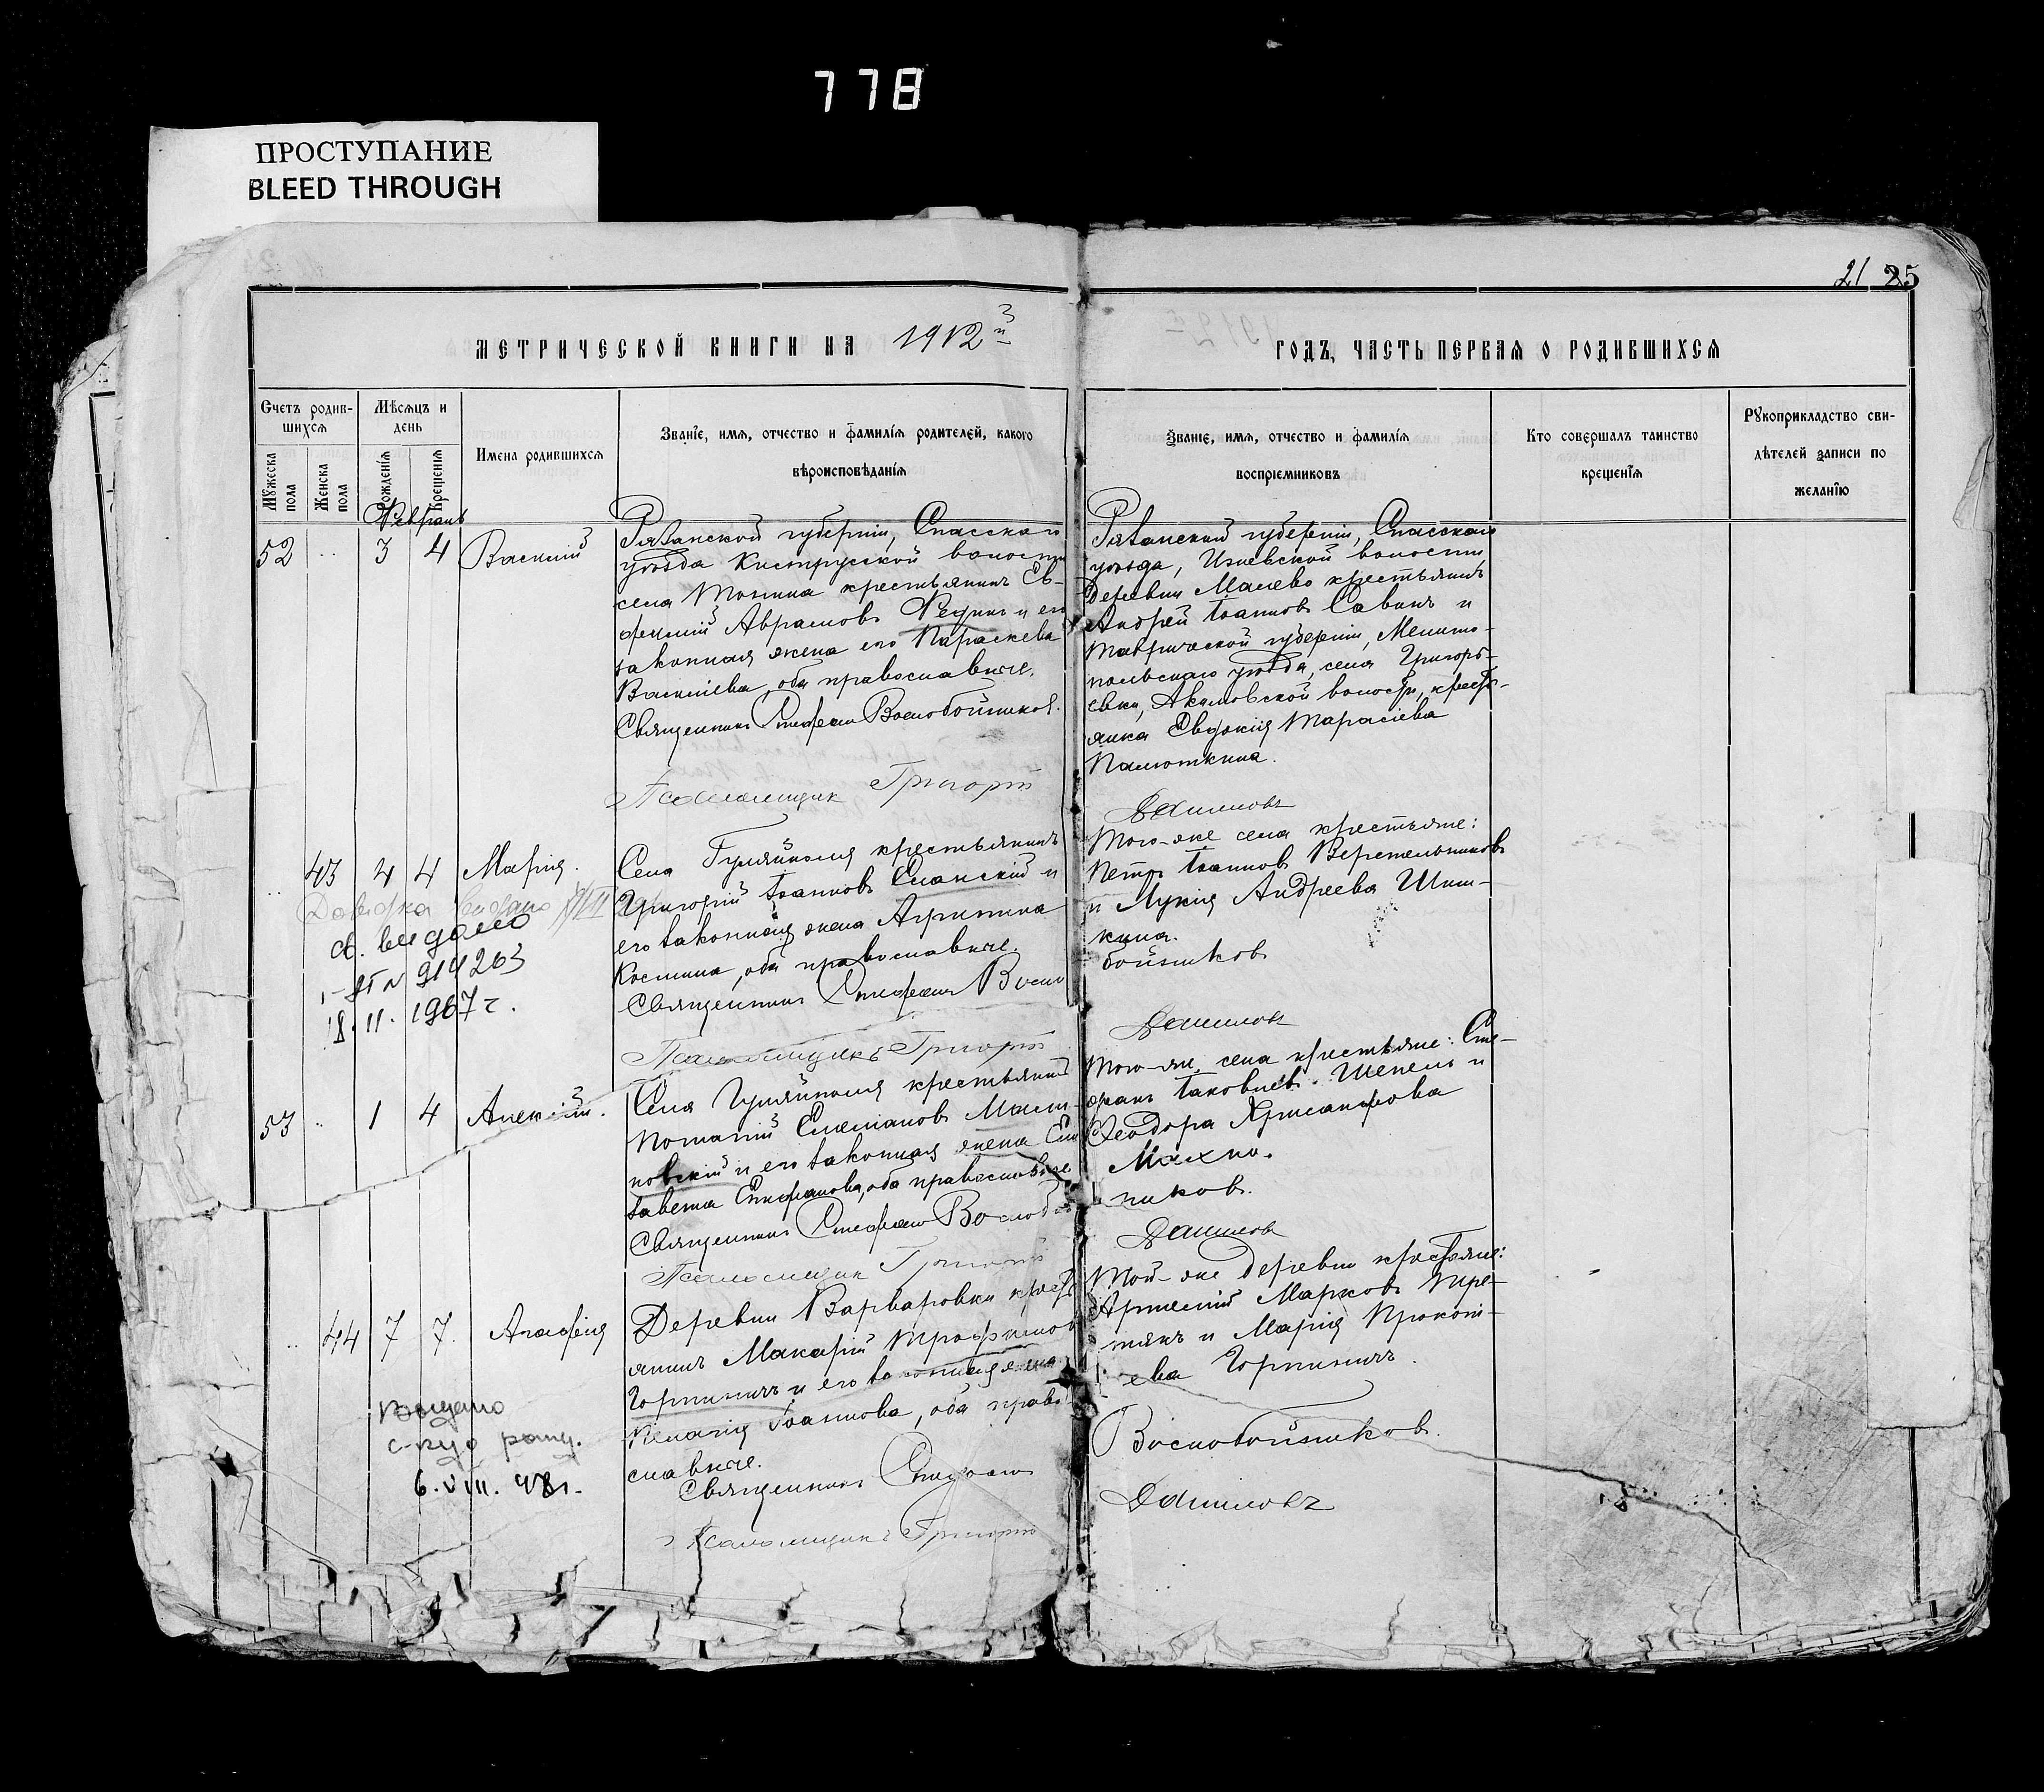 778
ПРОСТУПАНИЕ
BLEED THROUGH
21 25
МЕТРИЧЕСКОЙ КНИГИ НА 1912 3й
ГОДЪ, ЧАСТЬ ПЕРВАЯ О РОДИВШИХСЯ
Счетъ родив-
шихся
Мѣсяцъ и
день
Мужеска
пола
Женска
пола
Рожденія
Крещенія
Имена родившихся
Званіе, имя, отчество и фамилія родителей, какого
вѣроисповѣданія
Званіе, имя, отчество и фамилія
воспріемниковъ
Кто совершалъ таинство
крещенія
Рукоприкладство сви-
дѣтелей записи по
желанію
Февраль
52 3 4 Василій
Рязанской губерніи, Спасскаго
уѣзда Киструсской волости
села Тонина крестьянинъ Ев-
фимій Аврамовъ Редин и его
законная жена его Параскева
Василіева, оба православные.
Священникъ Стефанъ Воскобойников.
Псаломщик Григорій
Рязанской губерніи, Спасскаго
уѣзда, Ижевской волости
деревни Малеево крестьянинъ
Андрей Іоанновъ Савинъ и
Таврической губерніи, Мелито-
польскаго уѣзда, села Григорь-
евки, Акимовской волости, кресть-
янка Евдокія Тарасіева
Палюткина.
Даниловъ
43 4 4 Марія.
Довідка видано
св. видано
914263
18.II.1967 г.
Села Гуляйполя крестьянинъ
Григорій Іоанновъ Сланскій и
его законная жена Агрипина
Космина, оба православные.
Священникъ Стефанъ Воско
Псаломщикъ Григорій
Того-же села крестьяне:
Петръ Іоанновъ Веретельниковъ
и Лукія Андреева Шиш-
кина.
бойников
Даниловъ
53 1 4 Алексій.
Села Гуляйполя крестьянинъ
Потапій Емеліановъ Мали-
новскій и его законная жена Ели
завета Стефанова, оба православные.
Священникъ Стефанъ Воскобой
Псаломщик Григорій
Того-же села крестьяне: Сте-
фанъ Іаковлевъ Шепель и
Ѳеодора Хрисанфова
Махно.
ников.
Даниловъ
44 7 7. Агафія
Видано
6.VIII.48г.
Деревни Варваровки кресть
янинъ Макарій Трофимов
Горпиничъ и его законная жена
Пелагія Іоаннова, оба право
славные.
Священникъ Стефанъ
Псаломщикъ Григорій
Той-же деревни крестьяне:
Артемій Марковъ Тре-
тякъ и Марія Прокопі-
ева Горпиничъ.
Воскобойников.
Даниловъ